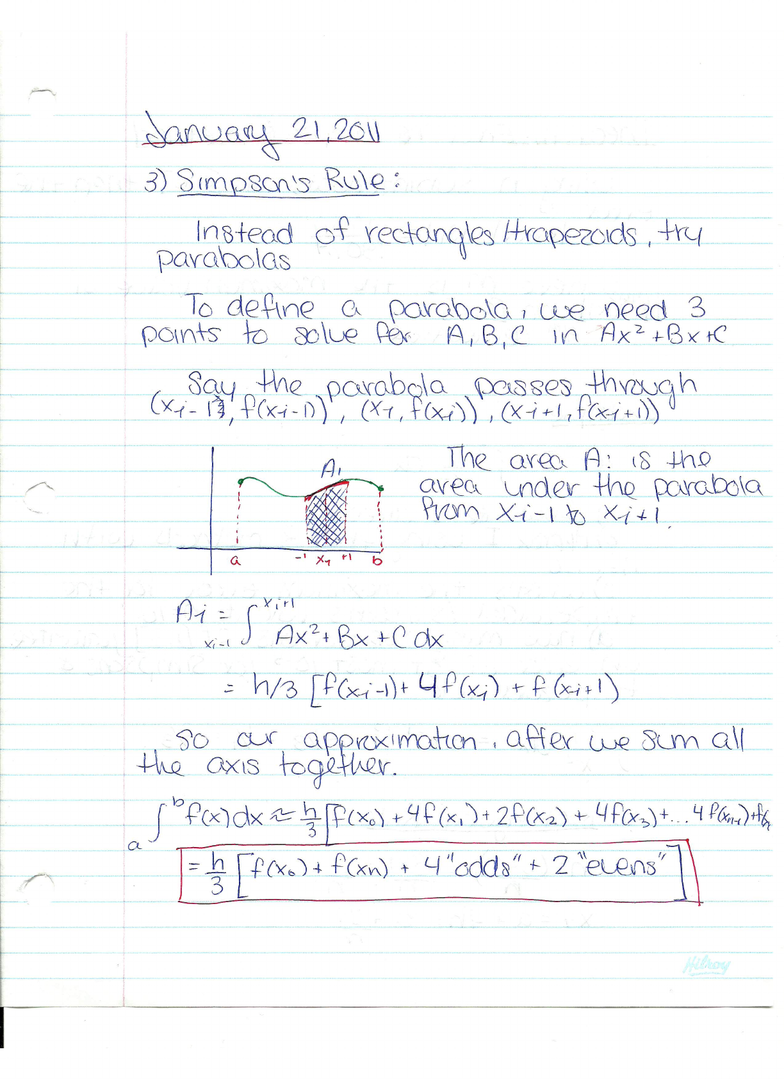 January 21, 2011
3) Simpson's Rule:
Instead of rectangles/trapezoids, try
parabolas
To define a parabola, we need 3
points to solve for A, B, C in Ax² + Bx + C
Say the parabola passes through
(xi-1, f(xi-1)), (xi, f(xi)), (xi+1, f(xi+1))
The area Ai is the
area under the parabola
from xi-1 to xi+1.
Ai
a -1 xi +1 b
Ai = ∫ xi-1 xi+1 Ax² + Bx + C dx
= h/3 [f(xi-1) + 4f(xi) + f(xi+1)]
so our approximation, after we sum all
the axis together.
a∫b f(x)dx ≈ h/3 [f(x₀) + 4f(x₁) + 2f(x₂) + 4f(x₃) + ... 4f(xn-1) + f(xn
= h/3 [f(x₀) + f(xn) + 4 "odds" + 2 "evens"]
Hilroy